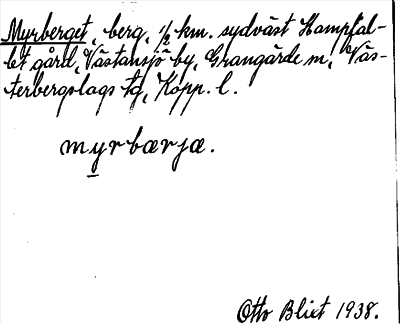 Myrberget, berg, ½ km. sydväst Hampfal-
let gård, Västansjö by, Grangärde sn, Väs-
terbergslags tg, Kopp. l.
myrbærjæ.
Otto Blixt 1938.